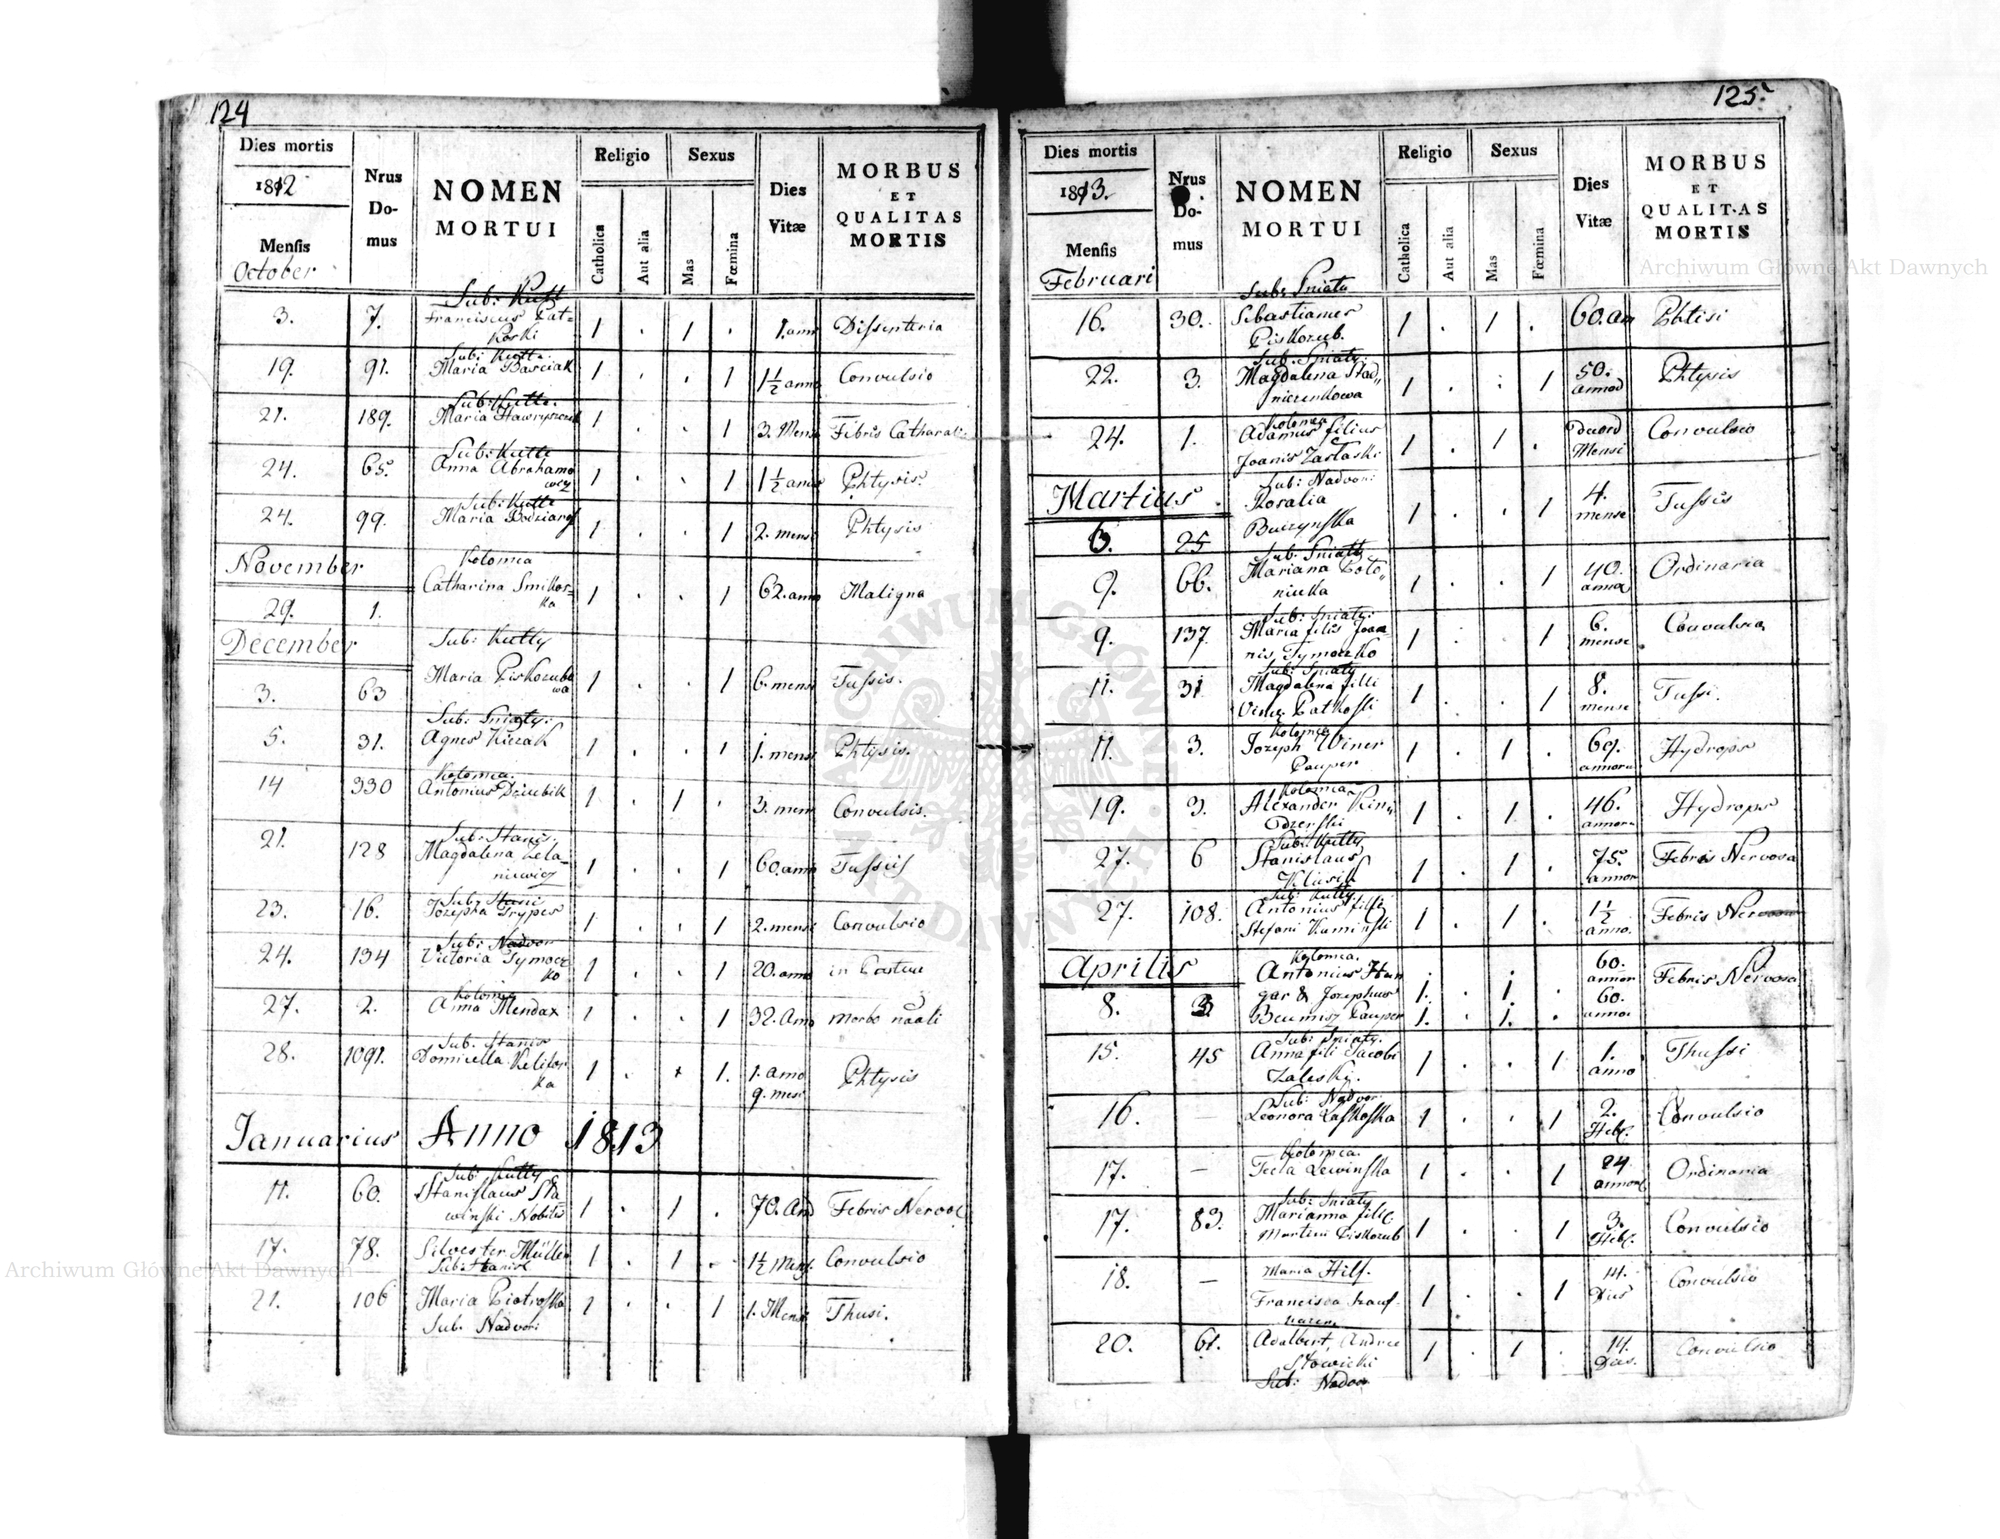 124
Dies mortis
1812
Mensis
October
Nrus
Do-
mus
NOMEN
MORTUI
Religio
Catholica
Aut alia
Sexus
Mas
Fœmina
Dies
Vitæ
MORBUS
ET
QUALITAS
MORTIS
Sub: Kutt
3. 7. Franciscus Pat- 1 . 1 . 1. ann Dissenteria
Koski
Sub: Kutte.
19. 91. Maria Barciak 1 . . 1 1½ anno Convulsio
Sub: Kutte.
21. 189. 1 . . 1 3. Mens Febris Catharali
Sub: Kutte
24. 65. Anna Abrahamo 1 . . 1 1½ anno Phtysis
wcz
Sub: Kutte
24. 99. Maria 1 . . 1 2. mens Phtysis
November
Kolomea
29. 1. Catharina Smikos- 1 . . 1 62. ann Maligna
ka
December
Sub: Kutty
3. 63 Maria Piskozubo 1 . . 1 6. mens Tussis.
wa
Sub: Sniaty.
5. 31. Agnes Kiczak 1 . . 1 1. mens Phtysis.
Kolomea.
14 330 Antonius Dziubik 1 . 1 . 3. mens Convulsis.
Sub: Stanis.
21. 128 Magdalena Zela- 1 . . 1 60. ann Tussis
niewicz
Sub: Stani
23. 16. Jozepha Trypus 1 . . 1 2. mens Convulsio
Sub: Nadvor
24. 134 Victoria Tymocz 1 . . 1 20. anno in Partu
ko
Kolomea
27. 2. Anna Mendax 1 . . 1 32. Ano Morbo
Sub. Stanis
28. 1091. Domicella Kelifor 1 . . 1. 1. anno Phtysis
ka 9. mens
Januarius Anno 1813
Sub Kutty
11. 60. Stanislaus Sta- 1 . 1 . 70. Ann Febris Nervos
winski Nobilis
17. 78. Silvester Müller 1 . 1 . 1½ Mens. Convulsio
Sub: Stanisl
21. 106 Maria Piotroska 1 . . 1 1. Mens Thusi.
Sub. Nadvor:
125.
Dies mortis
1813.
Mensis
Februari
Nrus
Do-
mus
NOMEN
MORTUI
Religio
Catholica
Aut alia
Sexus
Mas
Fœmina
Dies
Vitæ
MORBUS
ET
QUALITAS
MORTIS
Sub: Sniaty
16. 30. Sebastianus 1 . 1 . 60. an Phtisi
Piskozub.
Sub. Sniaty.
22. 3. Magdalena Stad„ 1 . . 1 50. Phtysis
niczenkowa annor
Kolomea
24. 1. Adamus filius 1 . 1 . Convulsio
Joanis Zastaski Mensi
Martius
Sub: Nadvor:
6. 25 Rosalia 1 . . 1 4. Tussis
Buczynska mense
Sub. Sniaty
9. 66. Mariana Poto„ 1 . . 1 40. Ordinaria
nicka anno
Sub: Sniaty.
9. 137. Maria filis Joan 1 . . 1 6. Convulsio
nis Tymoczko mense
Sub: Sniaty
11. 31 Magdalena filli 1 . . 1 8. Tussi.
Patkoski mense
Kolomea
11. 3. Jozeph Winer 1 . 1 . 69. Hydrops
Pauper annoru
Kolomea
19. 3. Alexander Kin„ 1 . 1 . 46. Hydrops
dzerski annoru
Sub: Kutty
27. 6 Stanislaus 1 . 1 . 75. Febris Nervosa
Klusik annor
Sub: Kutty.
27. 108. Antonius fille 1 . 1 . 1½ Febris Nervosa
Stefani Kaminski anno.
Aprilis
Kolomea.
8. 3 Antonius Hun 1. . 1 . 60. Febris Nervosa
gar & Jozephus annor
Pauper 1. . 1. . 60. annor
Sub: Sniaty.
15. 45 Anna fili Jacobi 1 . . 1 1. Thussi
Zalesky. anno
Sub: Nadvor:
16. — Leonora Laskoska 1 . . 1 2. Convulsio
Heb.
Kolomea.
17. — Tecla Lewinska 1 . . 1 24 Ordinaria
annor
Sub: Sniaty
17. 83. Marianna filie 1 . . 1 3. Convulsio
Martini Piskozub Heb.
Maria Hilf.
18. — Francisca 1 . . 1 14. Convulsio
Dies
20. 61. Adalbert, Andree 1 . 1 . 14. Convulsio
Slowicki Dies.
Sub: Nadvor
Archiwum Główne Akt Dawnych
Archiwum Główne Akt Dawnych
ARCHIWUM GŁÓWNE AKT DAWNYCH